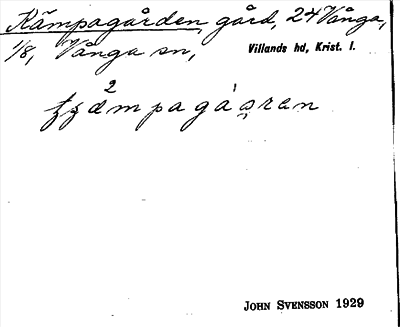 Kämpagården gård, 24 Vånga,
1/8, Vånga sn, Villands hd, Krist. l.
JOHN SVENSSON 1929